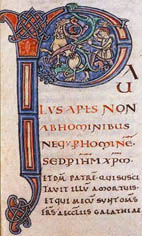 P
A
U
LVS APLS NON
ABHOMINIBUS
NEQ; PHOMINE
SEDPIHM XPM
ET DM PATRE QUISUSCI
TAVIT ILLU AMORTUIS
ET QUI MECU SUNT OMS
FRS AECCLIIS GALATHIAE